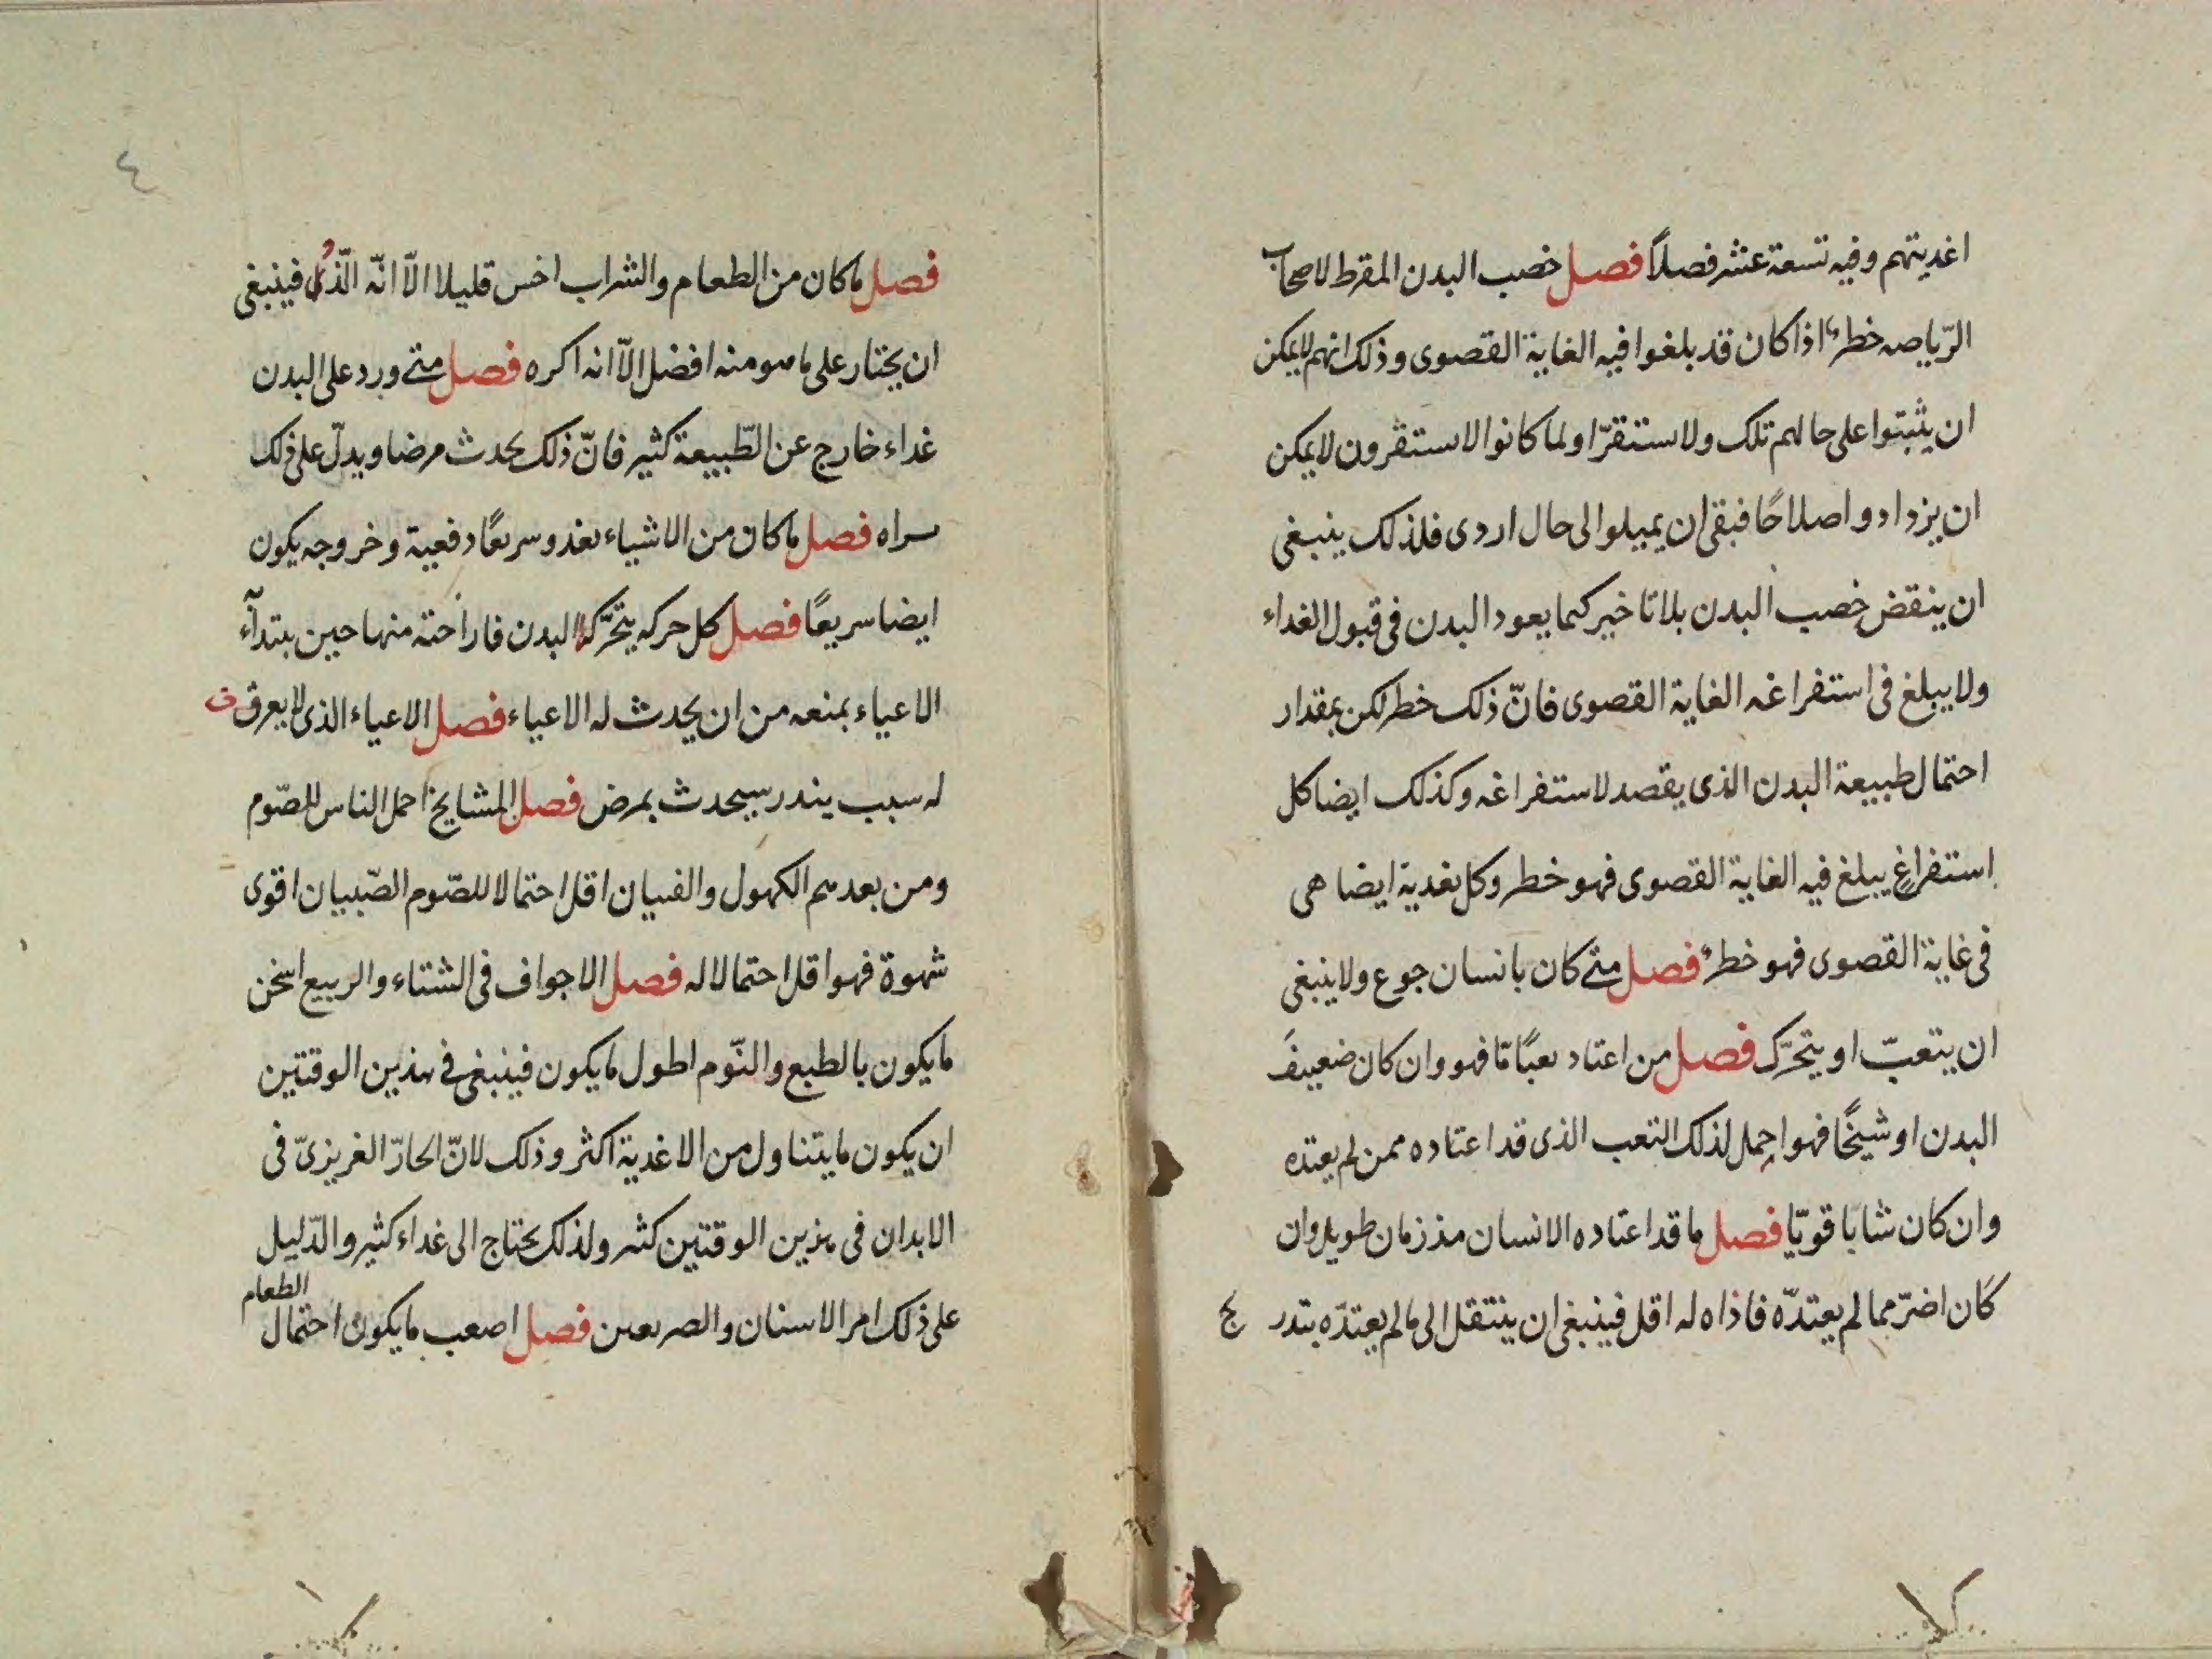 اغديتهم وفيه تسعة عشر فصلاً فصل خصب البدن المفرط لاصحاب
الرّياصه خطرٌ اذا كان قد بلغوا فيه الغاية القصوى وذلك انهم لا يمكن
ان يثبتوا على حالهم تلك ولا ستنقرّا ولما كانوا لا ستقرون لا يمكن
ان يزدادوا صلاحًا فبقى ان يميلوا الى حال اردى فلذلك ينبغى
ان ينقض خصب البدن بلا تاخير كيما يعود البدن فى قبول الغداء
ولا يبلغ فى استفراغه الغاية القصوى فانّ ذلك خطر لكن بمقدار
احتمال طبيعة البدن الذى يقصد لاستفراغه وكذلك ايضا كل
استفراغٍ يبلغ فيه الغاية القصوى فهو خطر وكل تغدية ايضا هى
فى غاية القصوى فهو خطرٌ فصل متى كان بانسان جوع ولا ينبغى
ان يتعبّ او يتحرّك فصل من اعتاد تعبًا مّا فهو وان كان ضعيفَ
البدن او شيخًا فهو احمل لذلك التعب الذى قد اعتاده ممن لم يعتده
وان كان شابا قويّا فصل ما قد اعتاده الانسان مذ زمان طويل وان
كان اضرّ مما لم يعتدّه فاذاه له اقل فينبغى ان ينتقل الى ما لم يعتدّه بتدر
ج
٤
فصل ما كان من الطعام والشراب اخس قليلا الّا انّه الّذ فينبغى
ان يختار على ما هو منه افضل الّا انه اكره فصل متى ورد على البدن
غداء خارج عن الطّبيعة كثير فانّ ذلك يحدث مرضا ويدلّ على ذلك
سراه فصل ما كان من الاشياء تغدو سريعًا دفعية وخروجه يكون
ايضا سريعًا فصل كل حركه يتحرّكها البدن فاراحته منها حين بتدآء
الاعياء بمنعه من ان يحدث له الاعياء فصل الاعياء الذى لا يعرف
له سبب يندر سيحدث بمرض فصل المشايخ احمل الناس للصّوم
ومن بعدهم الكهول والفتيان اقل احتمالا للصّوم الصّبيان اقوى
شهوة فهو اقل احتمالا له فصل الاجواف فى الشتاء والربيع اسخن
ما يكون بالطبع والنّوم اطول ما يكون فينبغى فى هذين الوقتين
ان يكون ما يتناول من الاغدية اكثر وذلك لانّ الحارّ الغريزىّ فى
الابدان فى هذين الوقتين كثير ولذلك يحتاج الى غداء كثير والدّليل
على ذلك امر الاسنان والصريعين فصل اصعب ما يكون احتمال
الطعام